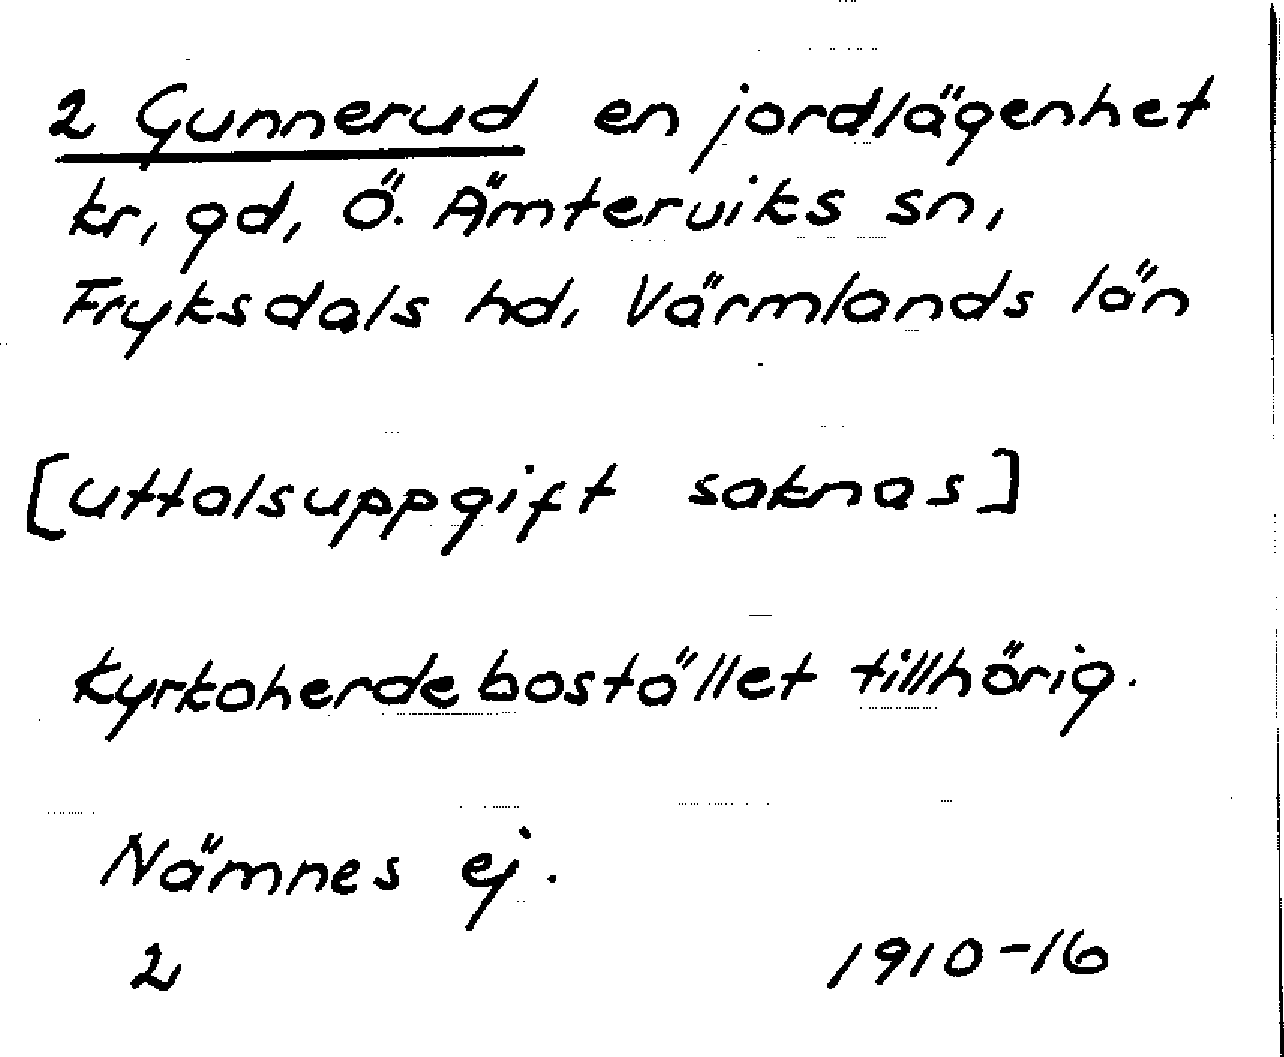 2 Gunnerud en jordlägenhet
kr, gd, Ö. Ämterviks sn,
Fryksdals hd, Värmlands län
[uttalsuppgift saknas]
Kyrkoherdebostället tillhörig.
Nämnes ej.
2 1910-16